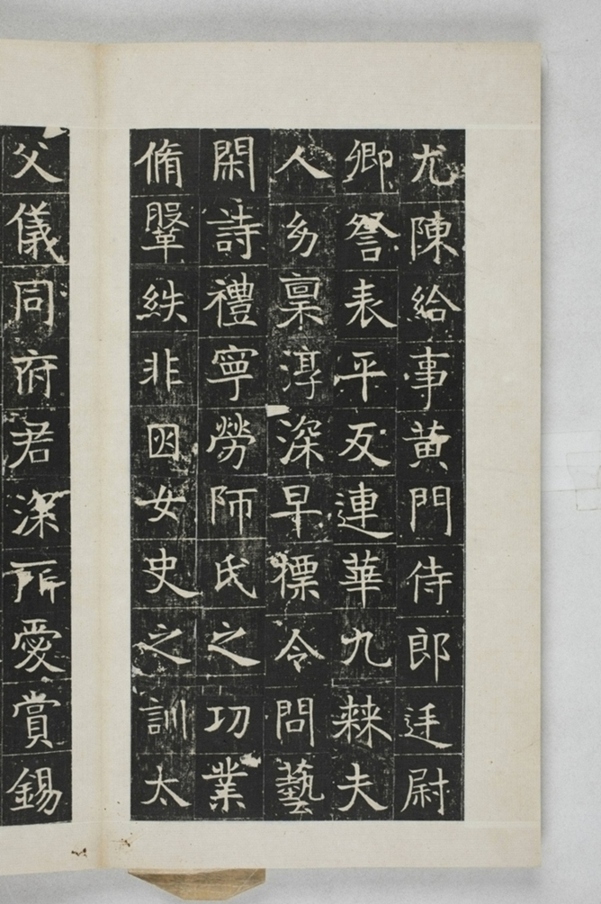 尤陳給事黃門侍郎迋尉
卿詧表平反連華九棘夫
人幼稟淳深早標令問藝
閑詩禮寧勞師氏之功業
脩鞶紩非因女史之訓太
父儀同府君深所愛賞錫